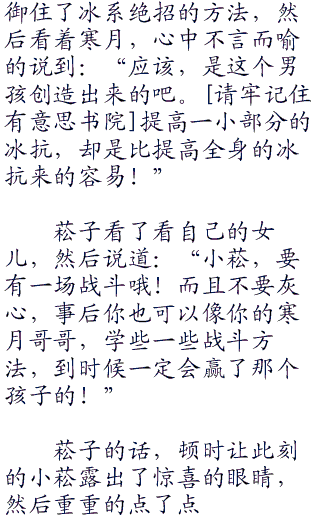 御住了冰系绝招的方法，然
后看着寒月，心中不言而喻
的说到：“应该，是这个男
孩创造出来的吧。[请牢记住
有意思书院]提高一小部分的
冰抗，却是比提高全身的冰
抗来的容易！”
菘子看了看自己的女
儿，然后说道：“小菘，要
有一场战斗哦！而且不要灰
心，事后你也可以像你的寒
月哥哥，学些一些战斗方
法，到时候一定会赢了那个
孩子的！”
菘子的话，顿时让此刻
的小菘露出了惊喜的眼睛，
然后重重的点了点